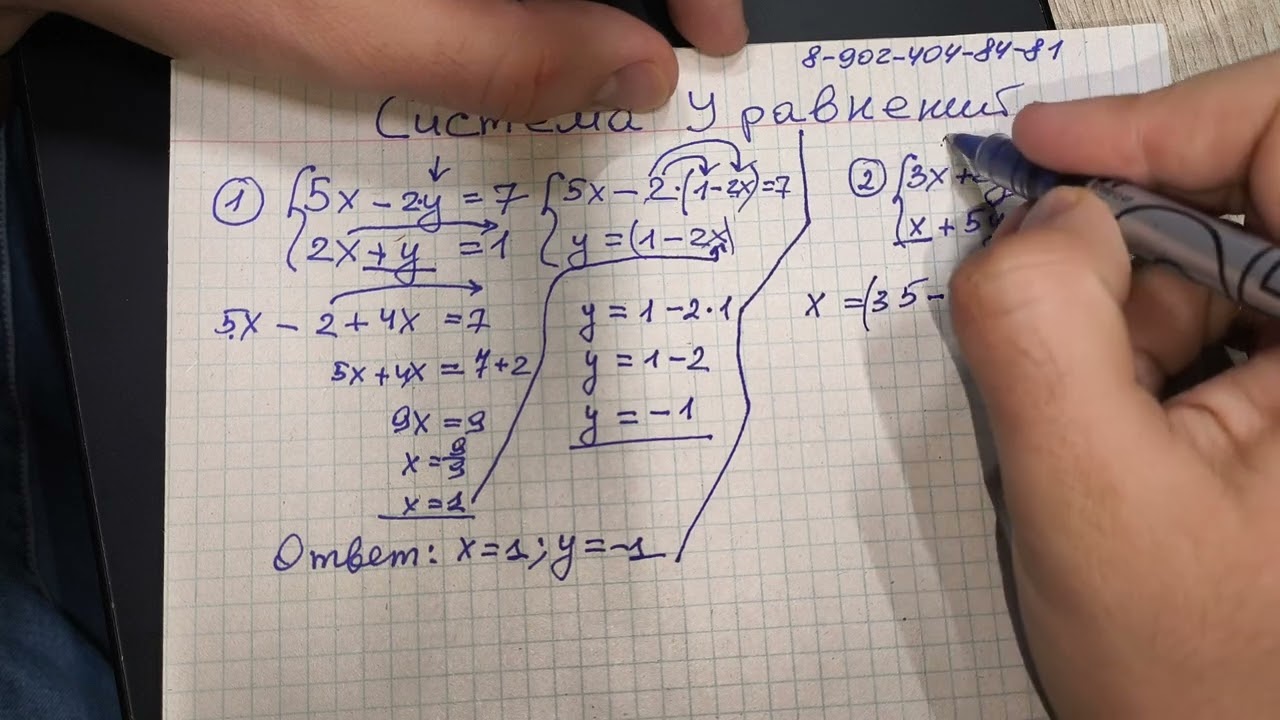 8-902-404-84-81
Система Уравнений
1 5x - 2·y = 7
2x + y = 1
5x - 2·(1-2x)=7
y = (1 - 2x)
5x - 2 + 4x = 7
5x + 4x = 7+2
9x = 9
x = 9/9
x = 1
y = 1 - 2·1
y = 1 - 2
y = -1
Ответ: x=1; y=-1
2 3x +
x + 5y
x = (35 -